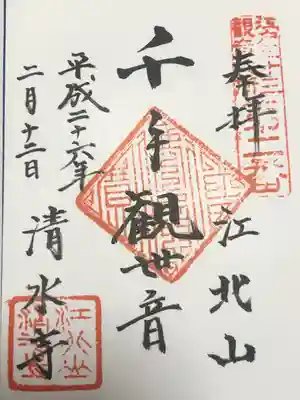 奉拝
江北山
千手観世音
平成二十六年
二月十二日
清水寺